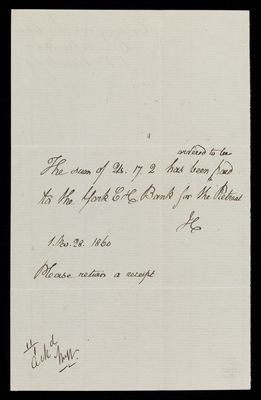 ordered to be
The sum of 24. 17. 2 has been paid
to the York C & C Bank for the Retreat
JC
1. Nov. 28. 1860
Please return a receipt
11